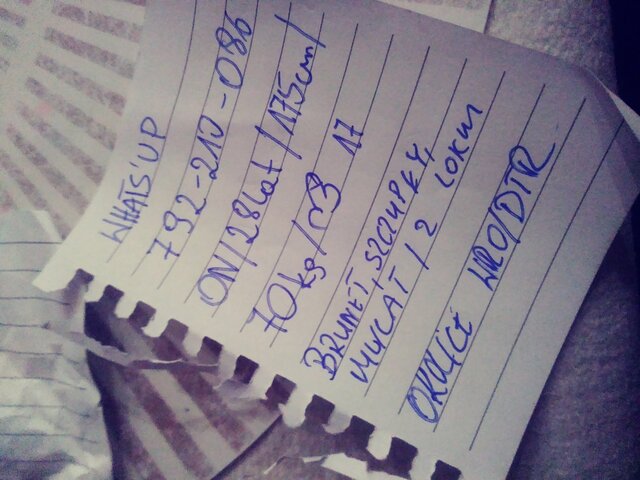 WHATS'UP
792-210-086
ON/28lat/175cm/
70kg/r3 17
BRUNET, SZCZUPŁY,
Z LOKUM
OKOLICE WRO/DTR